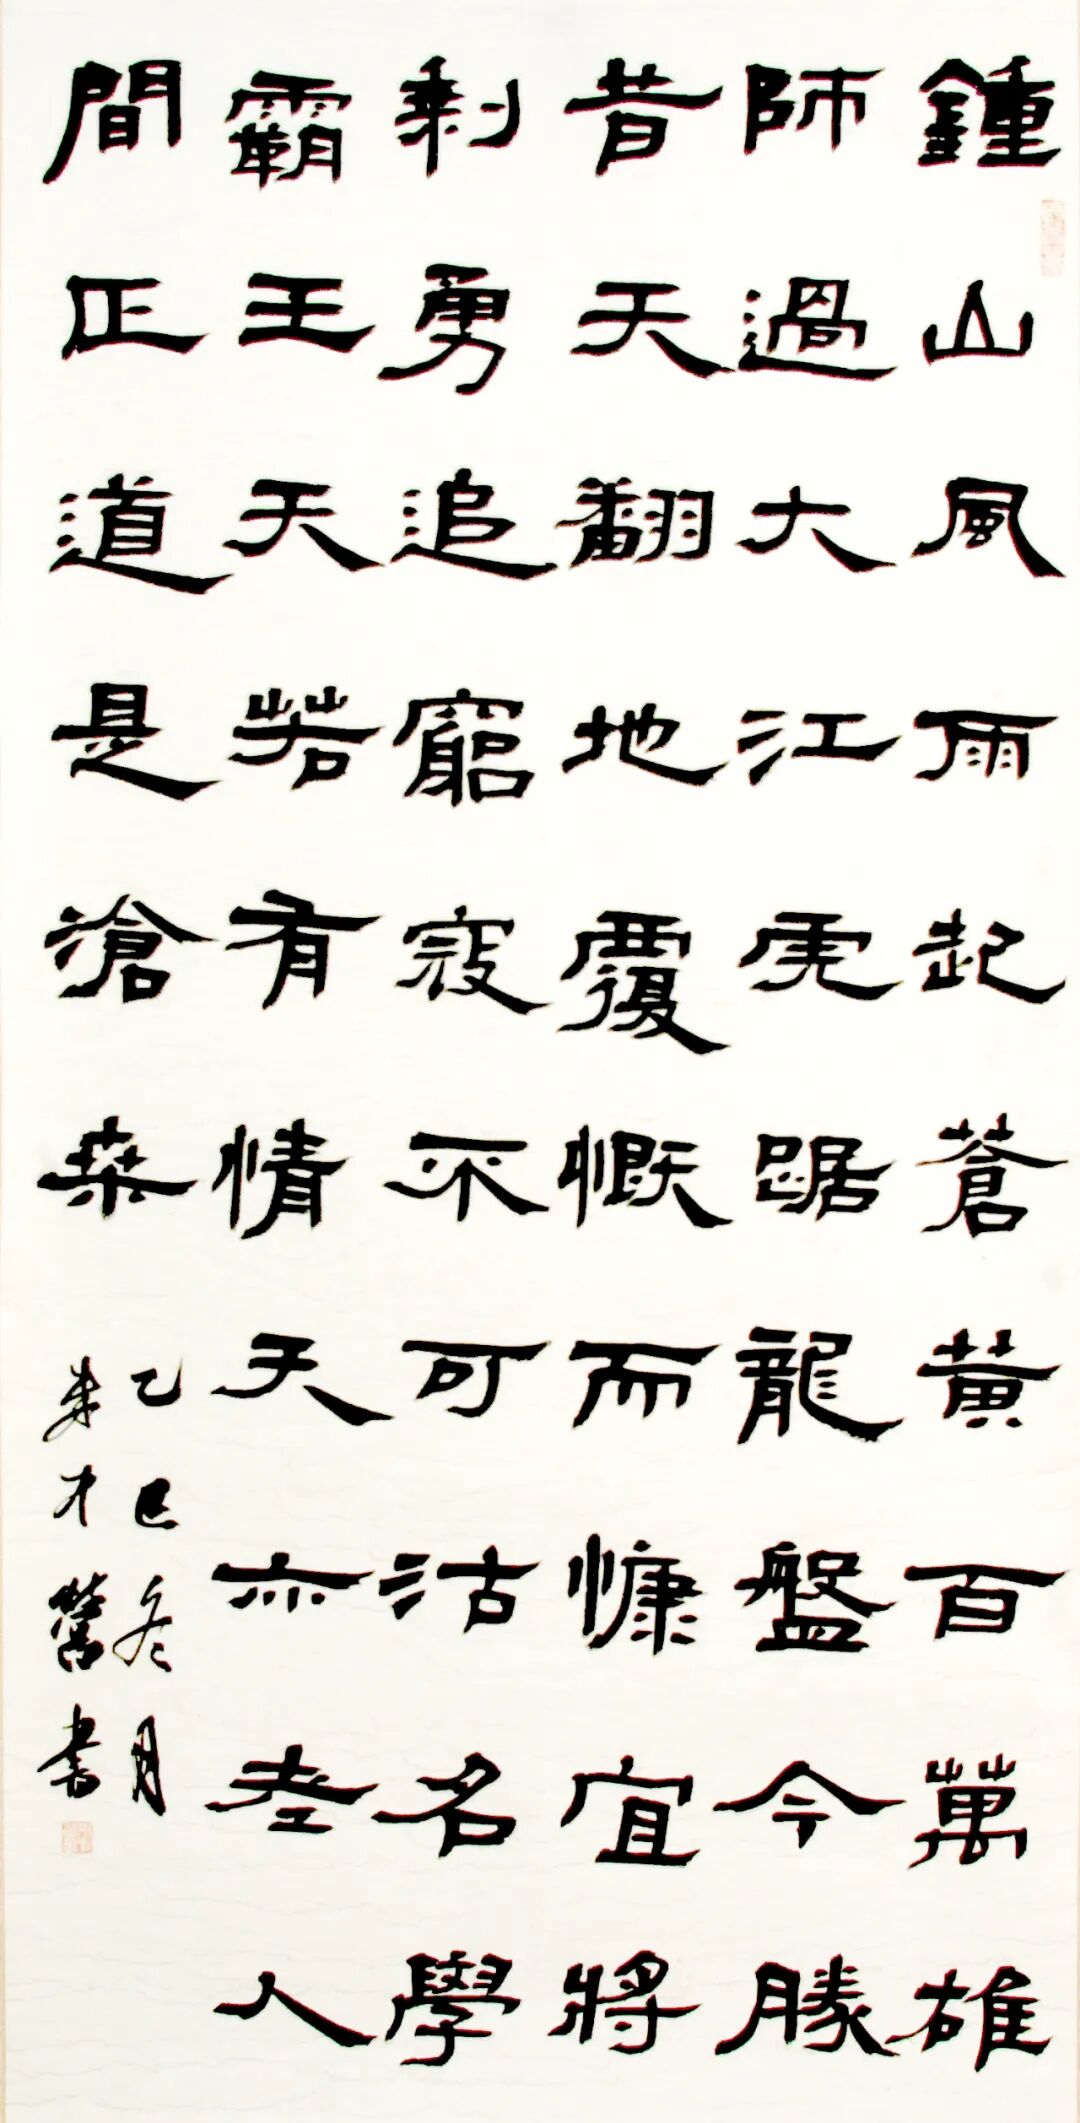 鍾山風雨起蒼黃百萬雄
師過大江虎踞龍盤今勝
昔天翻地覆慨而慷宜將
剩勇追窮寇不可沽名學
霸王天若有情天亦老人
間正道是滄桑
乙巳冬月
朱才營書